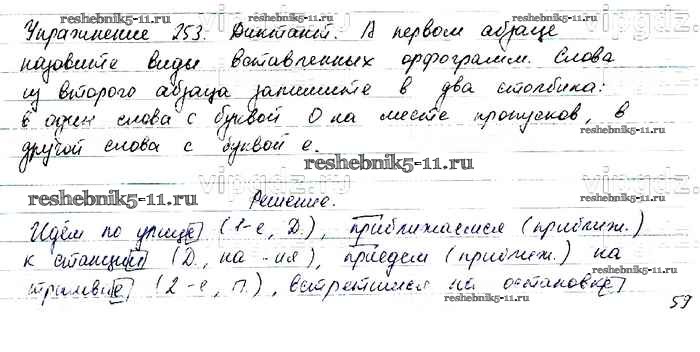 reshebnik5-11.ru
Упражнение 253. Диктант. В первом абзаце
vipgdz.
назовите виды вставленных орфограмм. Слова
из второго абзаца запишите в два столбика:
в один слова с буквой О на месте пропусков, в
другой слова с буквой е.
reshebnik5-11.ru
reshebnik5-11.ru
vipgdz.
Решение.
Идём по улице (1-е, Д.), приближаемся (приближ.)
к станции (Д., на -ия), приедем (приближ.) на
reshebnik5-11.ru
трамвае (2-е, П.), встретимся на остановке
reshebnik5-11.ru
59